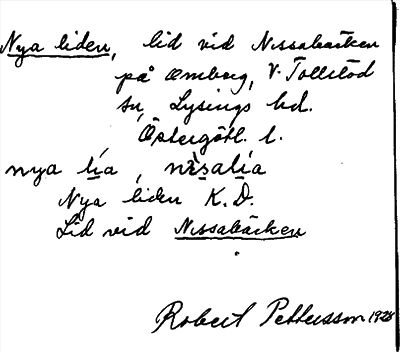 Nya liden, lid vid Nissabäcken
på Omberg, V. Tollstad
sn, Lysings hd.
Östergötl. l.
nya lia, nìsalía
Nya liden K.D.
Lid vid Nissabäcken
Robert Pettersson 1928